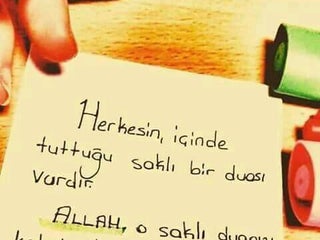 Herkesin, içinde
tuttuğu saklı bir duası
vardır.
ALLAH, o saklı duanızı